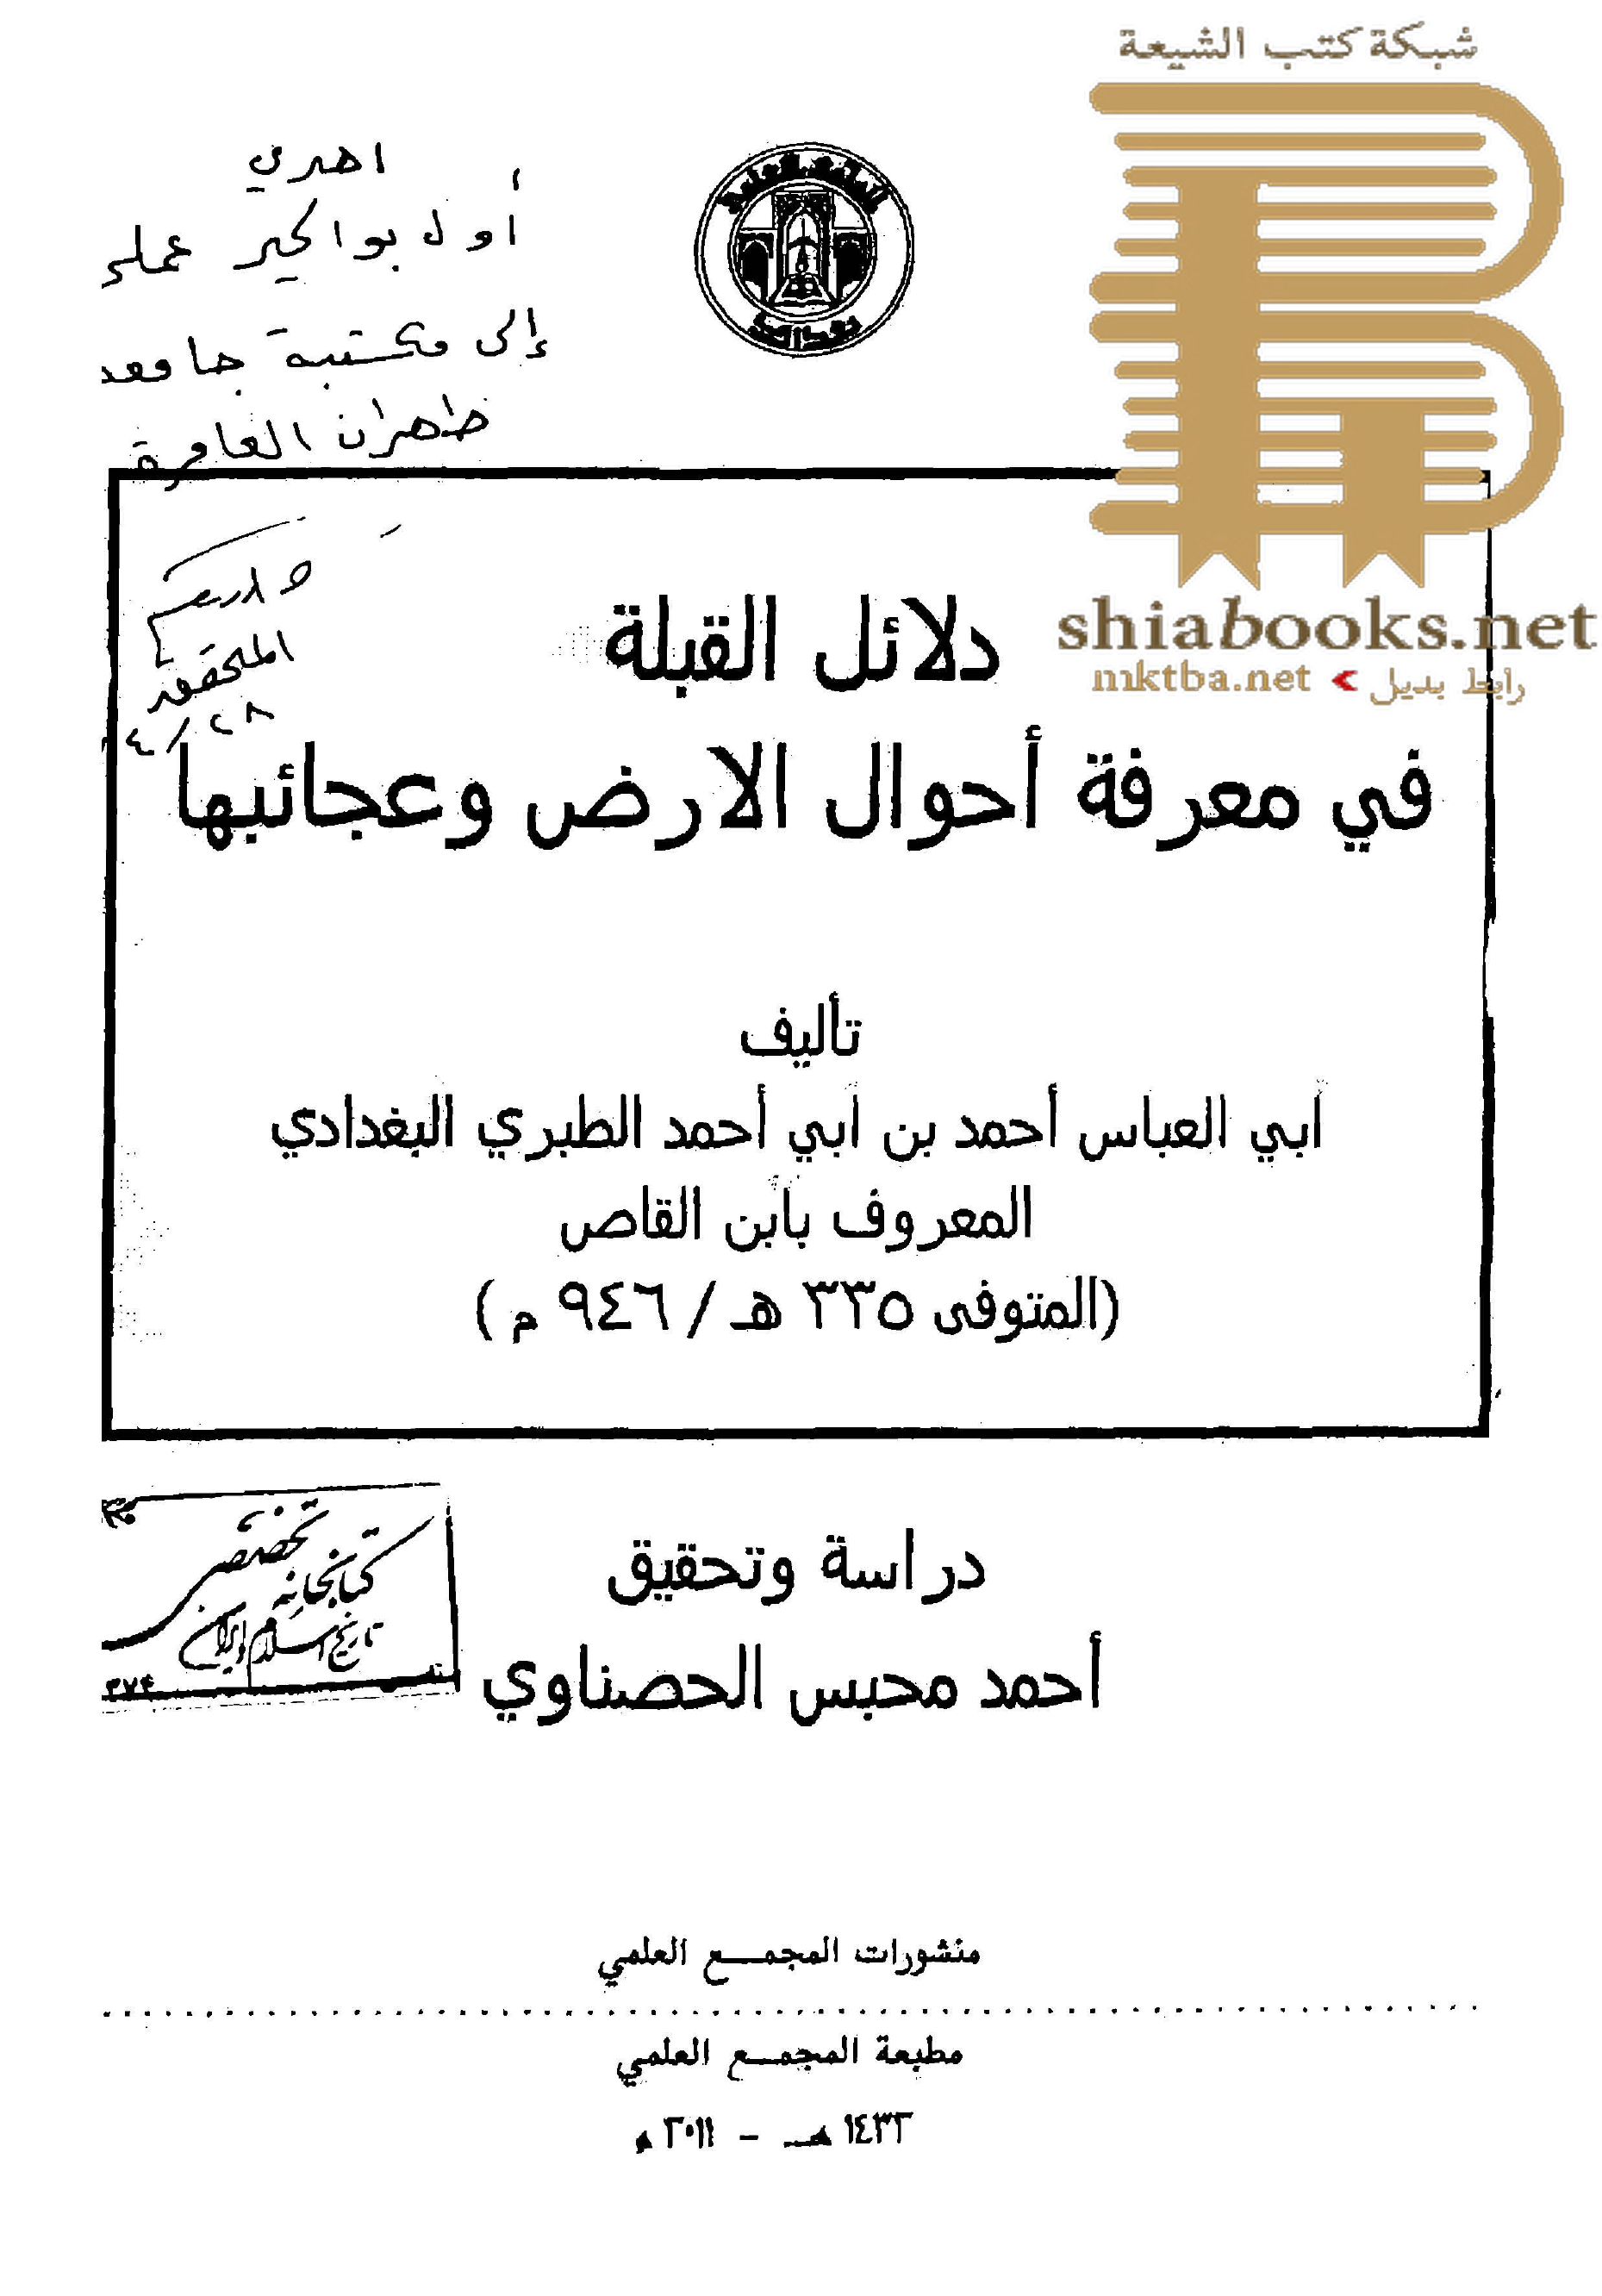 شبكة كتب الشيعة
shiabooks.net
mktba.net رابط بديل
اهدي
أول بواكير عملي
إلى مكتبة جامعة
طهران العامرة
المحقق
٢٨/٤
دلائل القبلة
في معرفة أحوال الارض وعجائبها
تأليف
أبي العباس أحمد بن أبي أحمد الطبري البغدادي
المعروف بأبن القاص
(المتوفى ٣٣٥ هـ / ٩٤٦ م )
كتابخانه تخصصي
تاريخ اسلام وايران
دراسة وتحقيق
أحمد محبس الحصناوي
منشورات المجمـــع العلمي
مطبعة المجمـــع العلمي
١٤٣٢ هـــ - ٢٠١١ م